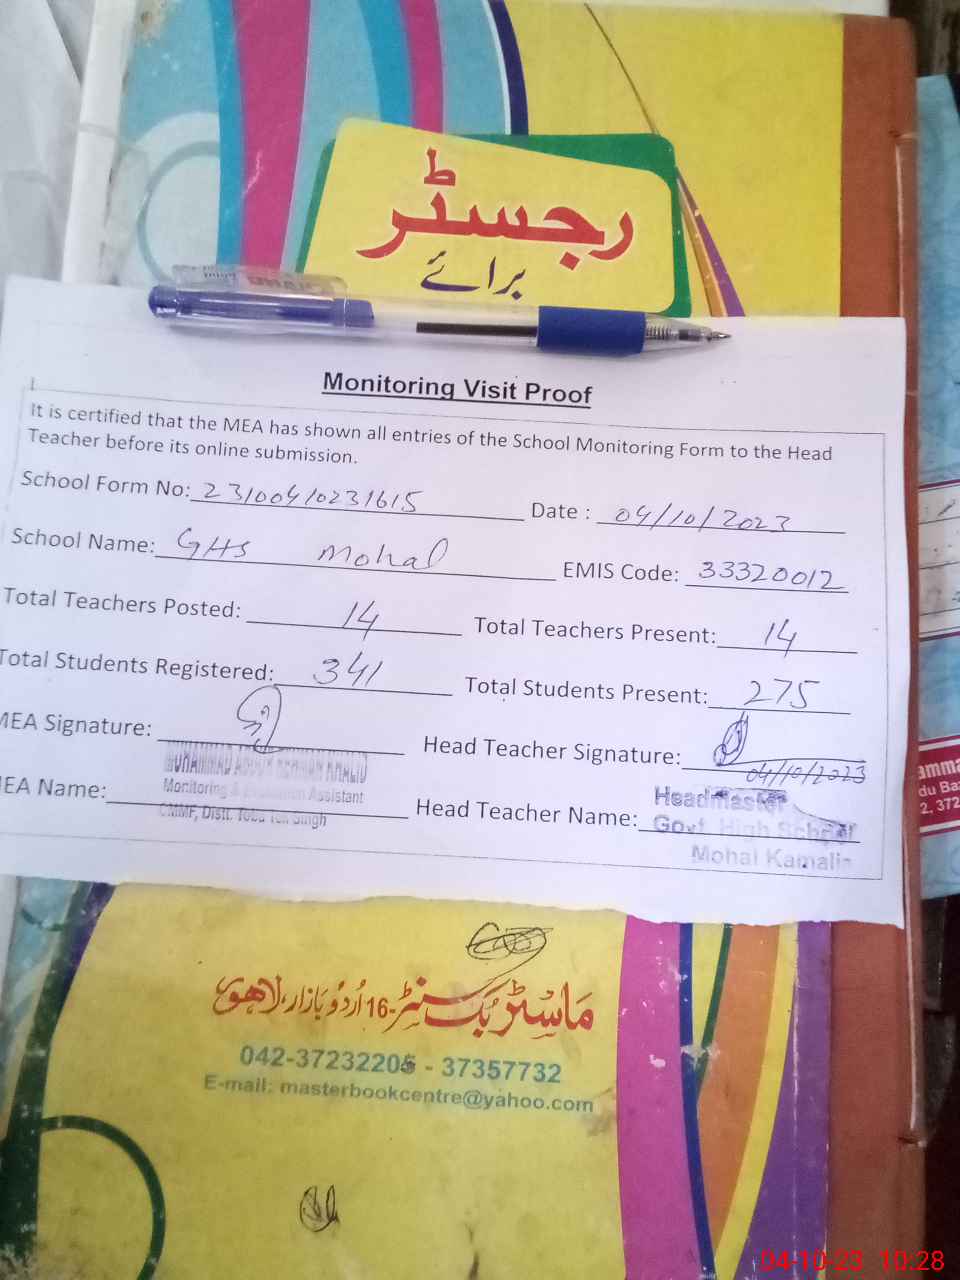 رجسٹر
برائے
Monitoring Visit Proof
It is certified that the MEA has shown all entries of the School Monitoring Form to the Head
Teacher before its online submission.
School Form No: 23100410231615 Date : 04/10/2023
School Name: GHS Mohal EMIS Code: 33320012
Total Teachers Posted: 14 Total Teachers Present: 14
Total Students Registered: 341 Total Students Present: 275
MEA Signature: Head Teacher Signature:
04/10/2023
MUHAMMAD KHALID
Monitoring & Evaluation Assistant
CMMF, Distt. Toba Tek Singh
MEA Name: Head Teacher Name:
Headmaster
Govt. High School
Mohal Kamalia
ماسٹر بک سنٹر-16 اُردُو بازار، لاہور
042-37232205 - 37357732
E-mail: masterbookcentre@yahoo.com
04-10-23 10:28